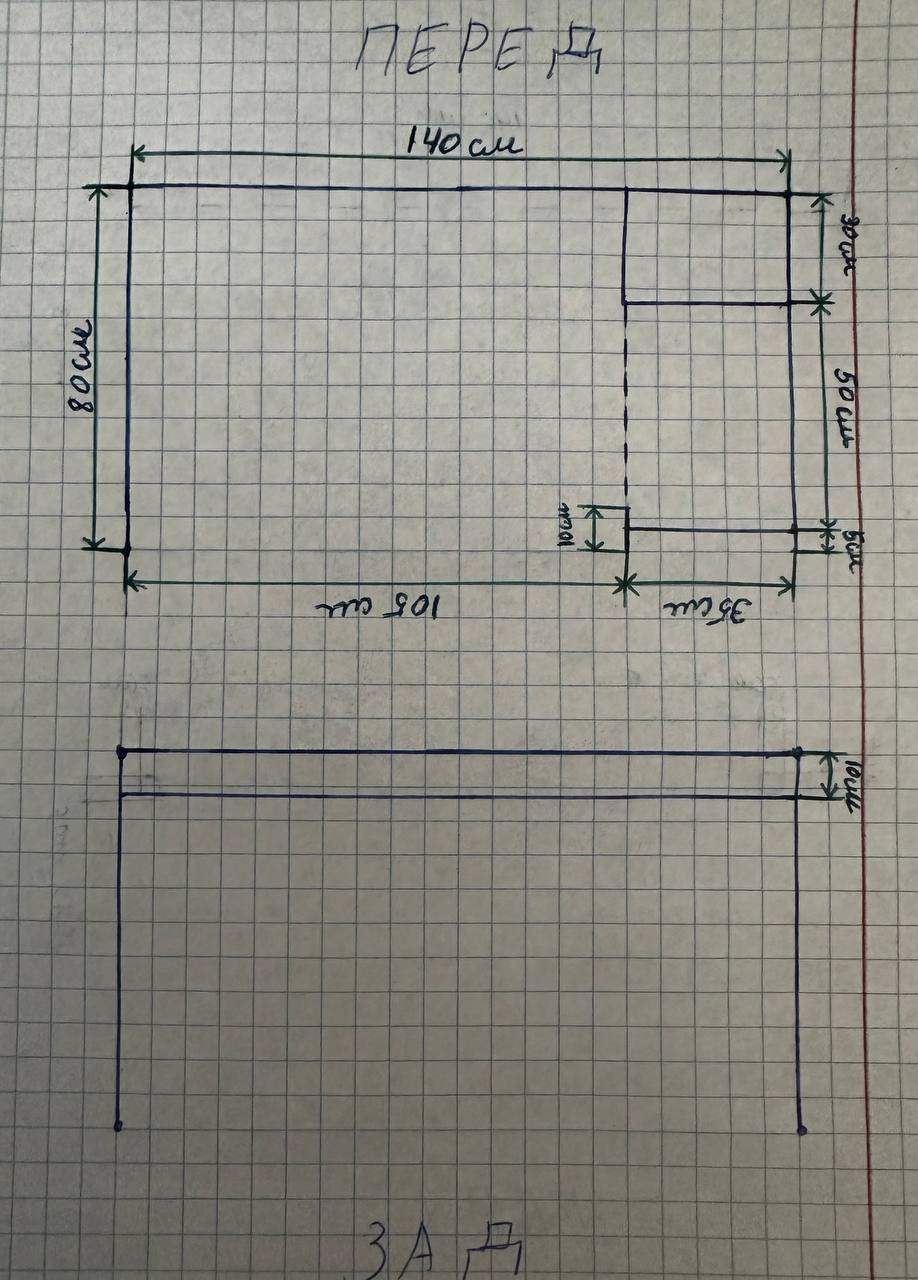 ПЕРЕД
140 см
30 см
80 см
50 см
10 см
5 см
105 см
35 см
10 см
ЗАД